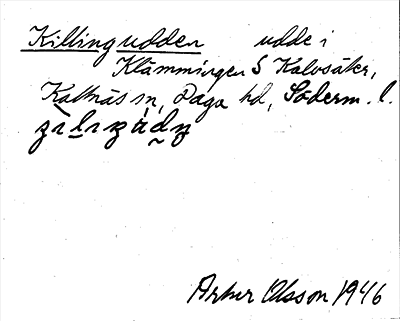 Killingudden udde i
Klämmingen S Kalvsåker,
Kattnäs sn, Daga hd, Söderm. l.
Artur Olsson 1946